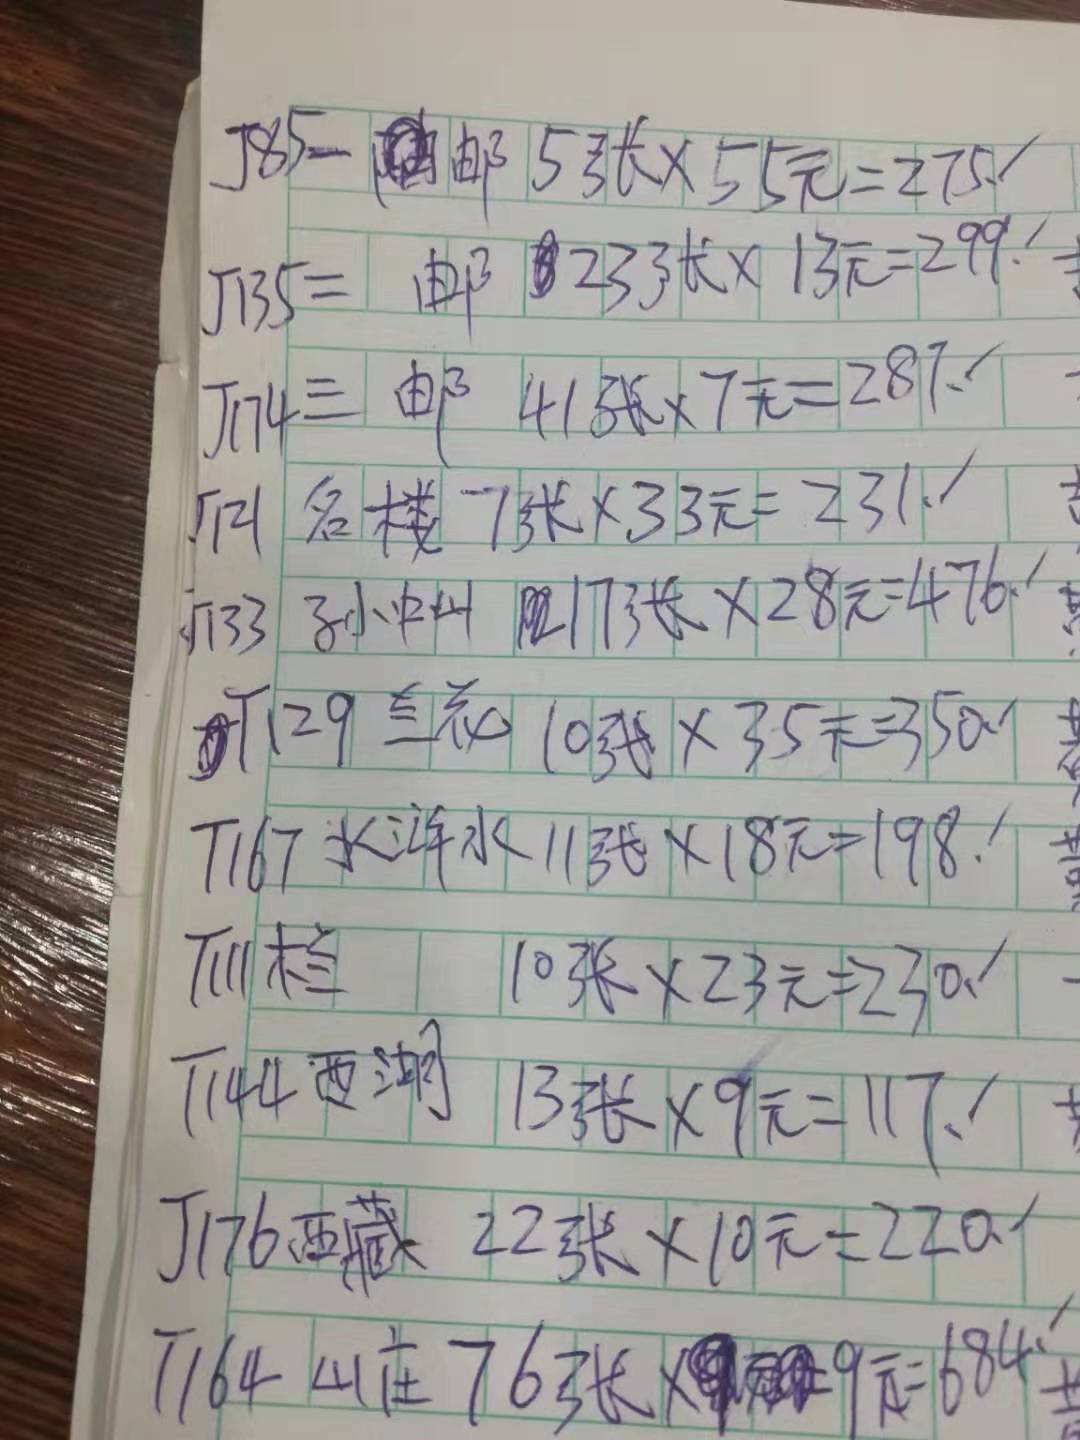 J85一 邮 5张×55元=275.✓
J135二 邮 23张×13元=299.✓
J174三 邮 41张×7元=287.✓
T121 名楼 7张×33元=231.✓
J133 孙中山 17张×28元=476.✓
T129 兰花 10张×35元=350.✓
T167 水浒水 11张×18元=198.✓
T111 栏 10张×23元=230.✓
T144 西湖 13张×9元=117.✓
J176 西藏 22张×10元=220.✓
T164 山庄 76张×9元=684.✓